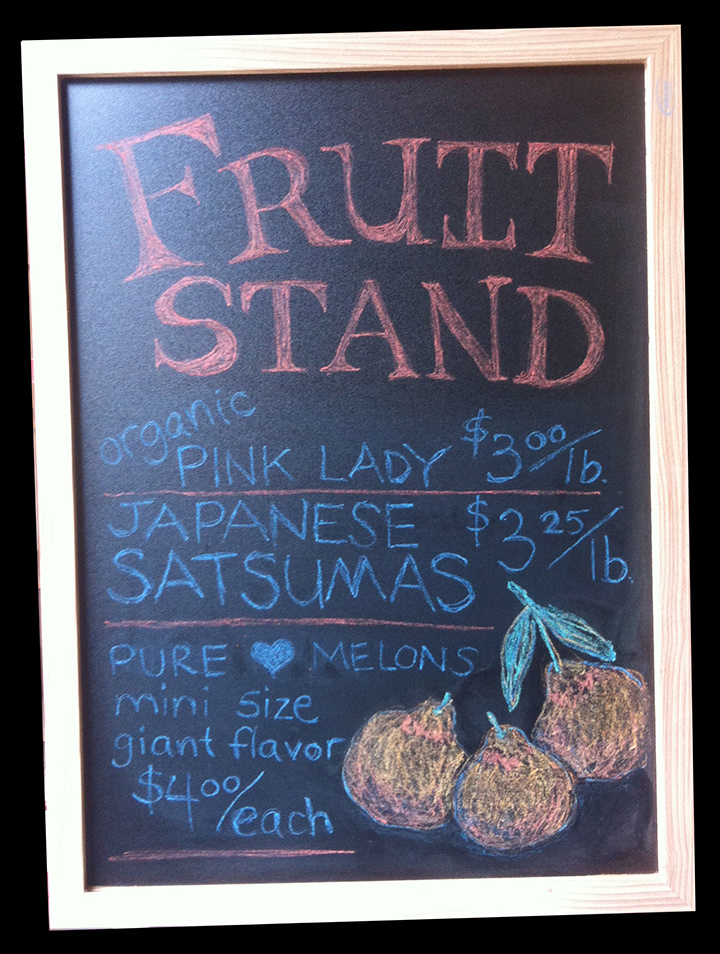 FRUIT
STAND
organic
PINK LADY $3.00/lb.
JAPANESE $3.25/lb.
SATSUMAS
PURE ♥ MELONS
mini size
giant flavor
$4.00/each